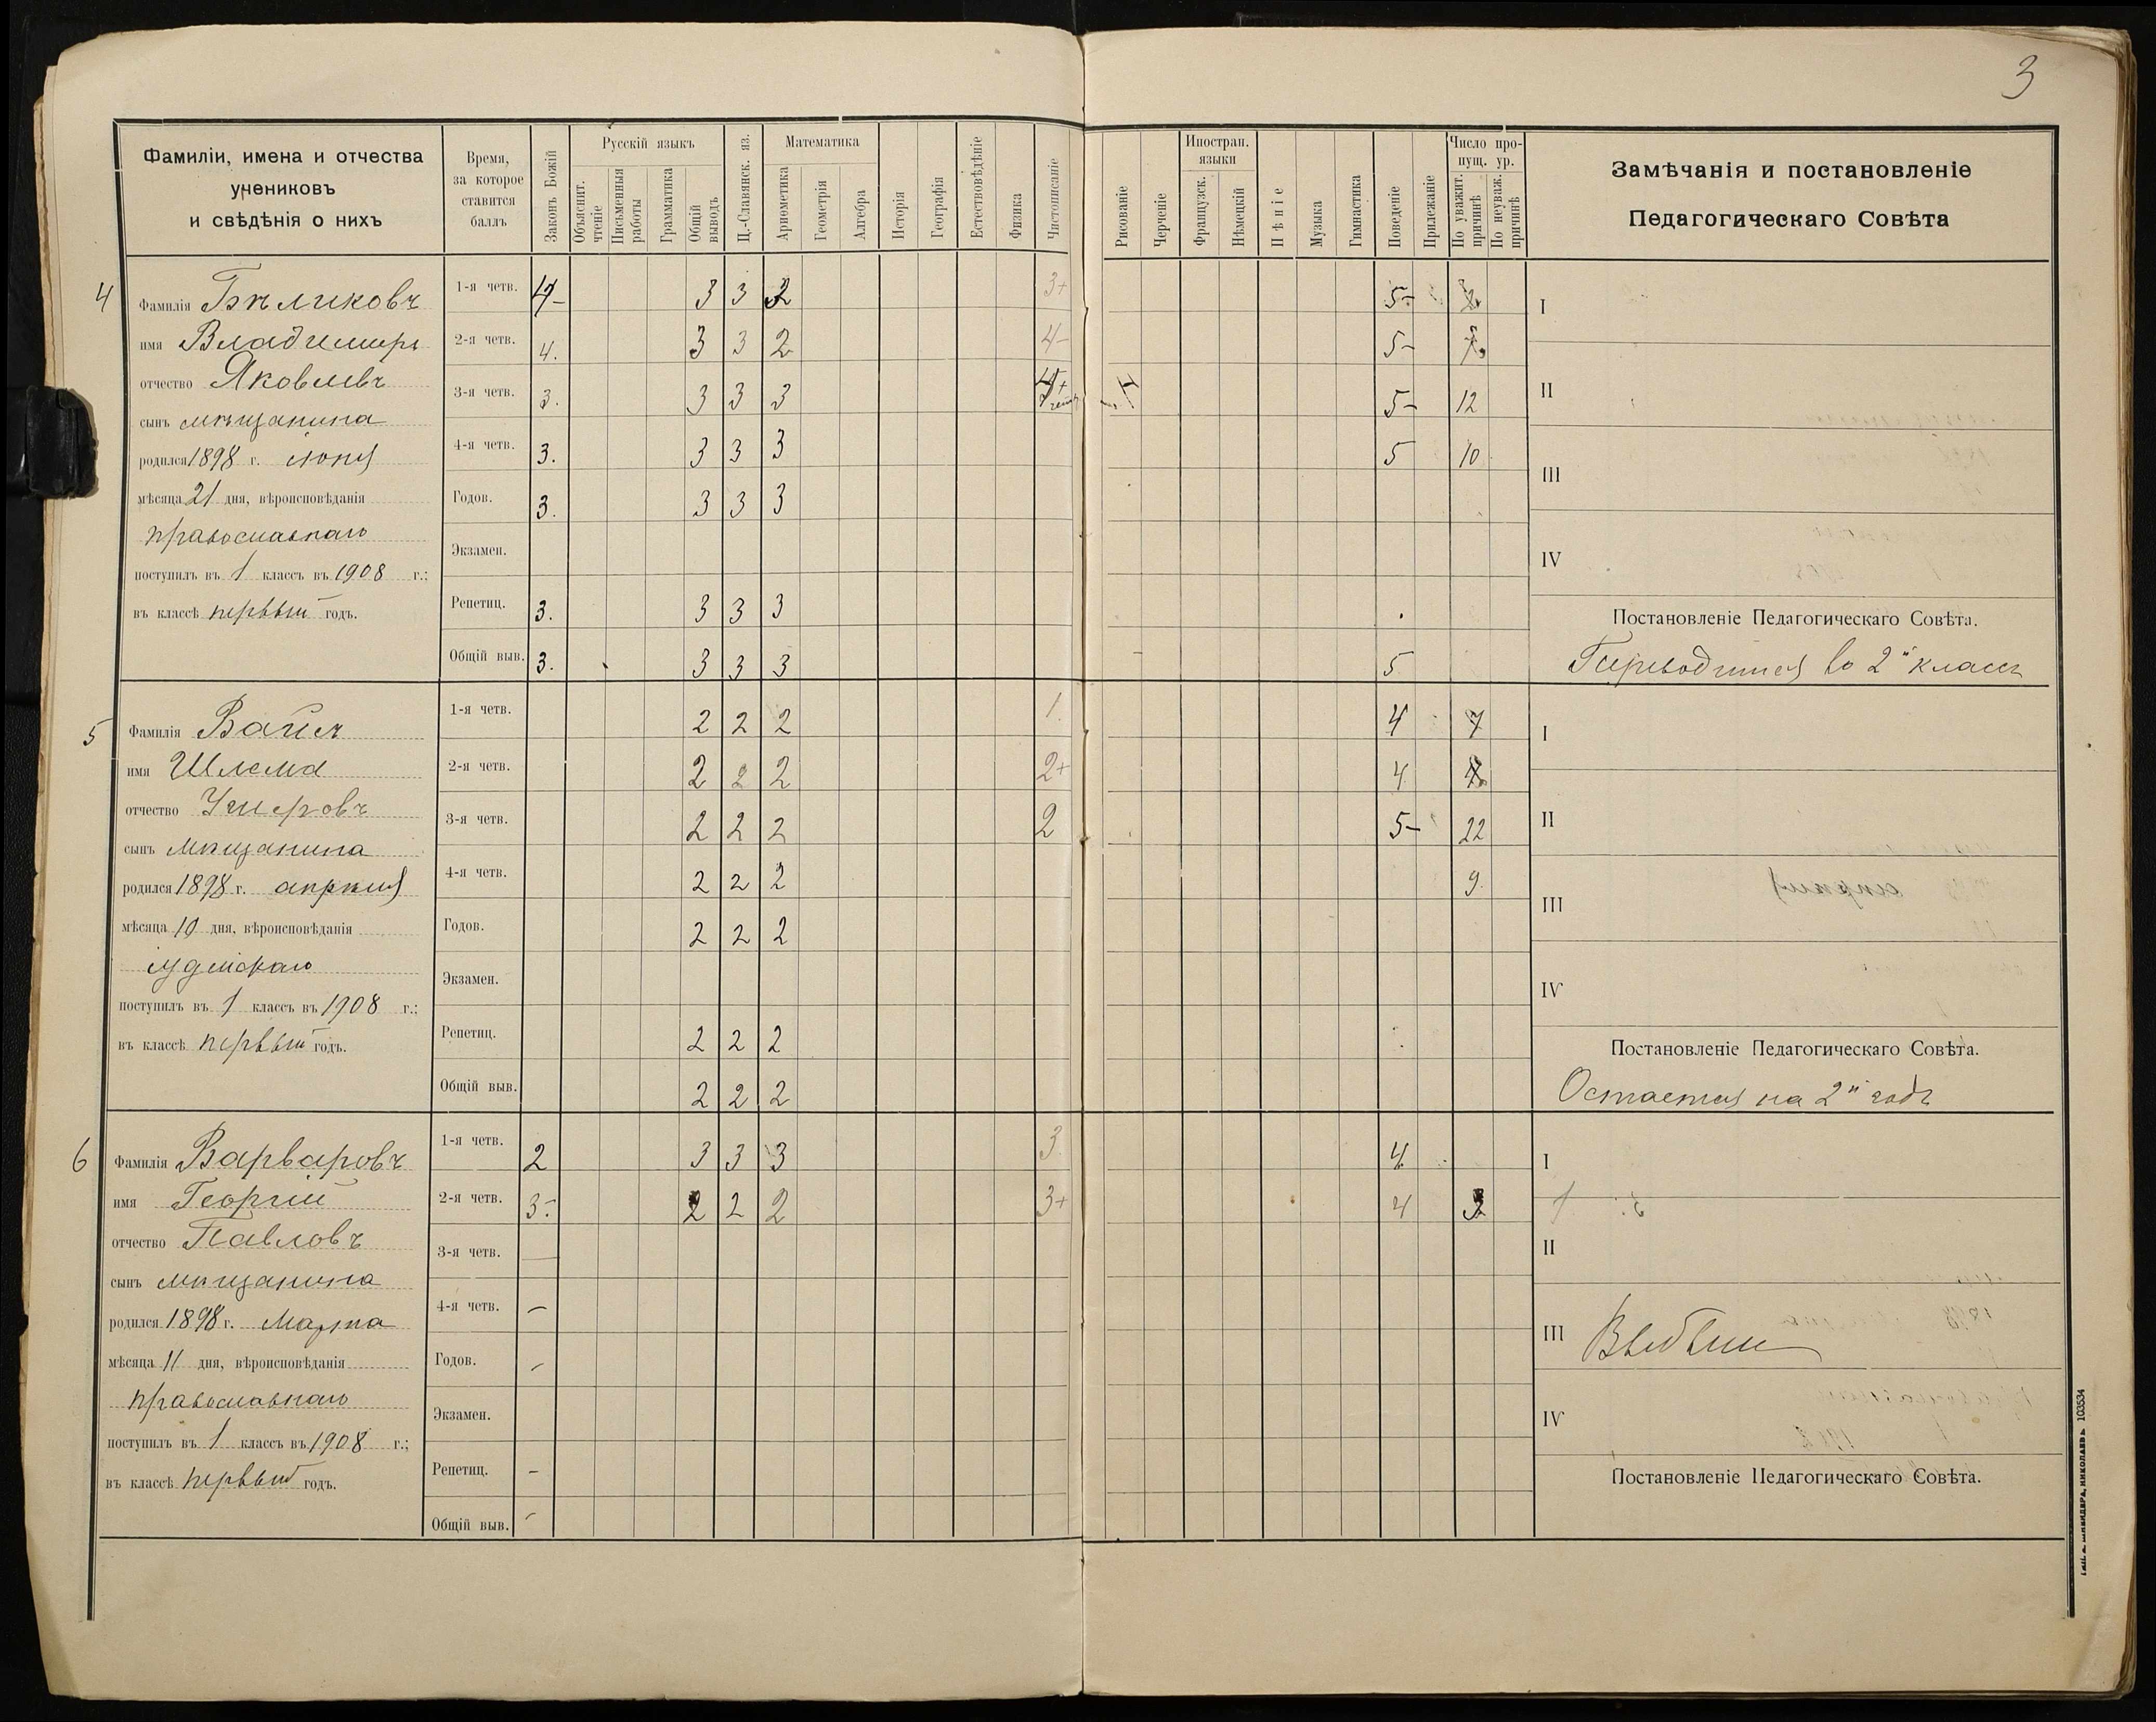 3
Фамиліи, имена и отчества
учениковъ
и свѣдѣнія о нихъ
Время,
за которое
ставится
баллъ
Законъ Божій
Русскій языкъ
Объяснит. чтеніе
Письменныя работы
Грамматика
Общій выводъ
Ц.-Славянск. яз.
Математика
Ариѳметика
Геометрія
Алгебра
Исторія
Географія
Естествовѣдѣніе
Физика
Чистописаніе
Рисованіе
Черченіе
Иностран. языки
Французск.
Нѣмецкій
Пѣніе
Музыка
Гимнастика
Поведеніе
Прилежаніе
Число пропущ. ур.
По уважит. причинѣ
По неуваж. причинѣ
Замѣчанія и постановленіе
Педагогическаго Совѣта
4
Фамилія Бѣликовъ
имя Владимиръ
отчество Яковлевъ
сынъ мѣщанина
родился 1898 г. іюня
мѣсяца 21 дня, вѣроисповѣданія
православнаго
поступилъ въ 1 классъ въ 1908 г.;
въ классѣ первый годъ.
1-я четв. 4- 3 3 2 3+ 5-
2-я четв. 4. 3 3 2 4- 5- 7
3-я четв. 3. 3 3 3 4+ 5- 12
4-я четв. 3. 3 3 3 5 10
Годов. 3. 3 3 3
Экзамен.
Репетиц. 3. 3 3 3
Общій выв. 3. 3 3 3 5
I
II
III
IV
Постановленіе Педагогическаго Совѣта.
Переводится во 2й классъ
5
Фамилія Вайсъ
имя Шлема
отчество Ушеровъ
сынъ мѣщанина
родился 1898 г. апрѣля
мѣсяца 10 дня, вѣроисповѣданія
іудейскаго
поступилъ въ 1 классъ въ 1908 г.;
въ классѣ первый годъ.
1-я четв. 2 2 2 1. 4 7
2-я четв. 2 2 2 2+ 4
3-я четв. 2 2 2 2 5- 22
4-я четв. 2 2 2 9.
Годов. 2 2 2
Экзамен.
Репетиц. 2 2 2
Общій выв. 2 2 2
I
II
III
IV
Постановленіе Педагогическаго Совѣта.
Остается на 2й годъ
6
Фамилія Варваровъ
имя Георгій
отчество Павловъ
сынъ мѣщанина
родился 1898 г. Марта
мѣсяца 11 дня, вѣроисповѣданія
православнаго
поступилъ въ 1 классъ въ 1908 г.;
въ классѣ первый годъ.
1-я четв. 2 3 3 3 3 4
2-я четв. 3- 2 2 2 3+ 4
3-я четв. —
4-я четв. —
Годов. —
Экзамен.
Репетиц. —
Общій выв. —
I
II
III Выбылъ
IV
Постановленіе Педагогическаго Совѣта.
НИКОЛАЕВЪ 103534